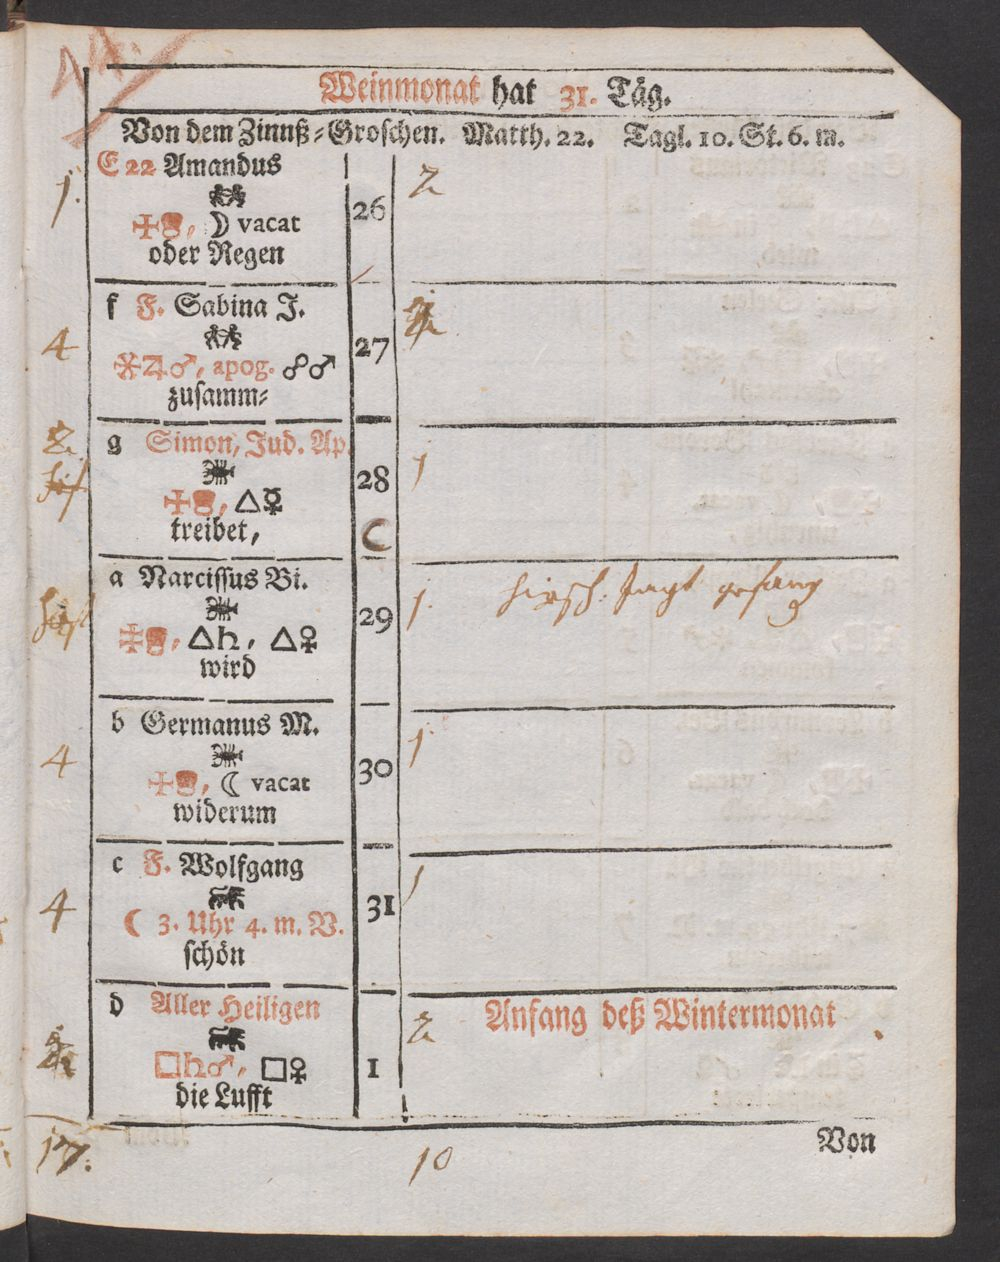 44.
Weinmonat hat 31. Täg.
Von dem Zinnß-Groschen. Matth. 22. Tagl. 10. St. 6. m.
E 22 Amandus
1. 26 2
, ☽ vacat
oder Regen
f F. Sabina J.
4 27
⚹♃♂, apog. ☍♂
zusamm-
2. g Simon, Jud. Ap.
28 1
, △☿
treibet,
a Narcissus Bi.
29 1. hirsch: Jagt gefang
, △♄, △♀
wird
b Germanus M.
4 30 1
, ☾ vacat
widerum
c F. Wolfgang
4 31 1
☾ 3. Uhr 4. m. V.
schön
d Aller Heiligen
2 Anfang deß Wintermonat
□♄♂, □♀ 1
die Lufft
Von
17. 10